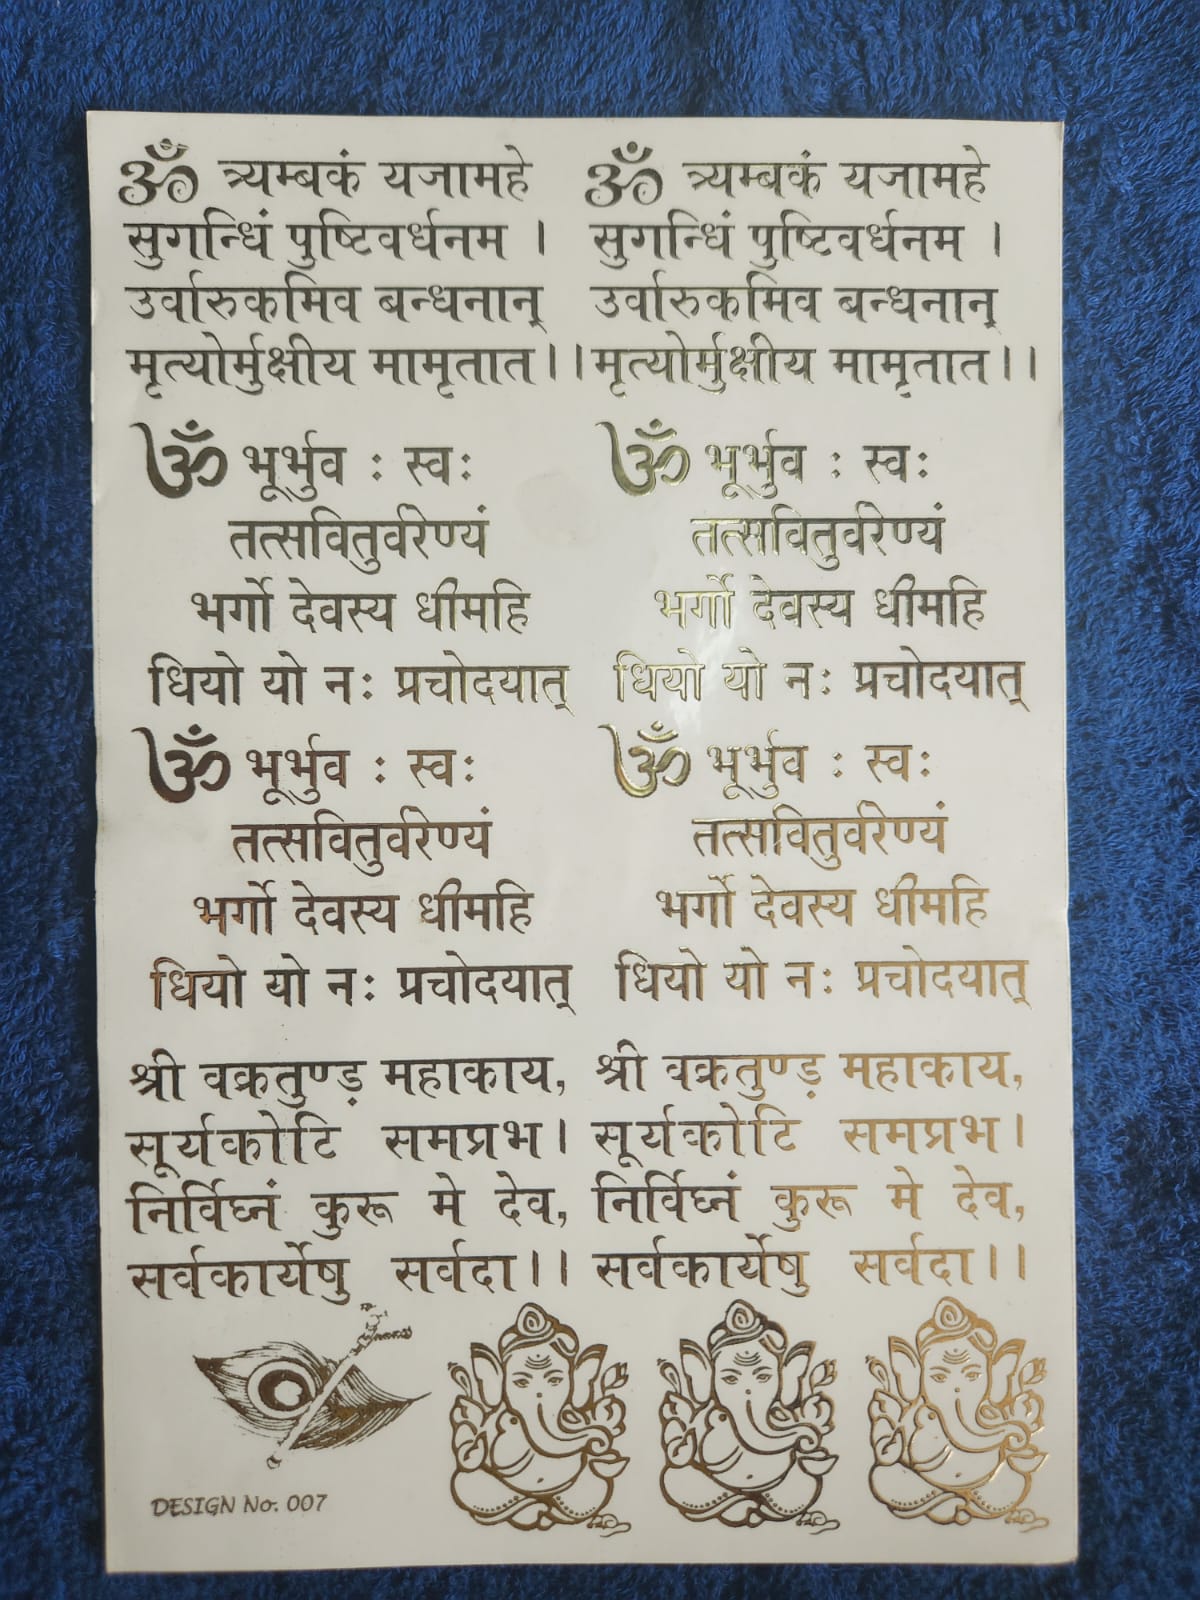 ॐ त्र्यम्बकं यजामहे
सुगन्धिं पुष्टिवर्धनम ।
उर्वारुकमिव बन्धनान्
मृत्योर्मुक्षीय मामृतात।।
ॐ त्र्यम्बकं यजामहे
सुगन्धिं पुष्टिवर्धनम ।
उर्वारुकमिव बन्धनान्
मृत्योर्मुक्षीय मामृतात।।
ॐ भूर्भुव : स्वः
तत्सवितुर्वरेण्यं
भर्गो देवस्य धीमहि
धियो यो नः प्रचोदयात्
ॐ भूर्भुव : स्वः
तत्सवितुर्वरेण्यं
भर्गो देवस्य धीमहि
धियो यो नः प्रचोदयात्
ॐ भूर्भुव : स्वः
तत्सवितुर्वरेण्यं
भर्गो देवस्य धीमहि
धियो यो नः प्रचोदयात्
ॐ भूर्भुव : स्वः
तत्सवितुर्वरेण्यं
भर्गो देवस्य धीमहि
धियो यो नः प्रचोदयात्
श्री वक्रतुण्ड़ महाकाय,
सूर्यकोटि समप्रभ।
निर्विघ्नं कुरू मे देव,
सर्वकार्येषु सर्वदा।।
श्री वक्रतुण्ड़ महाकाय,
सूर्यकोटि समप्रभ।
निर्विघ्नं कुरू मे देव,
सर्वकार्येषु सर्वदा।।
DESIGN No. 007